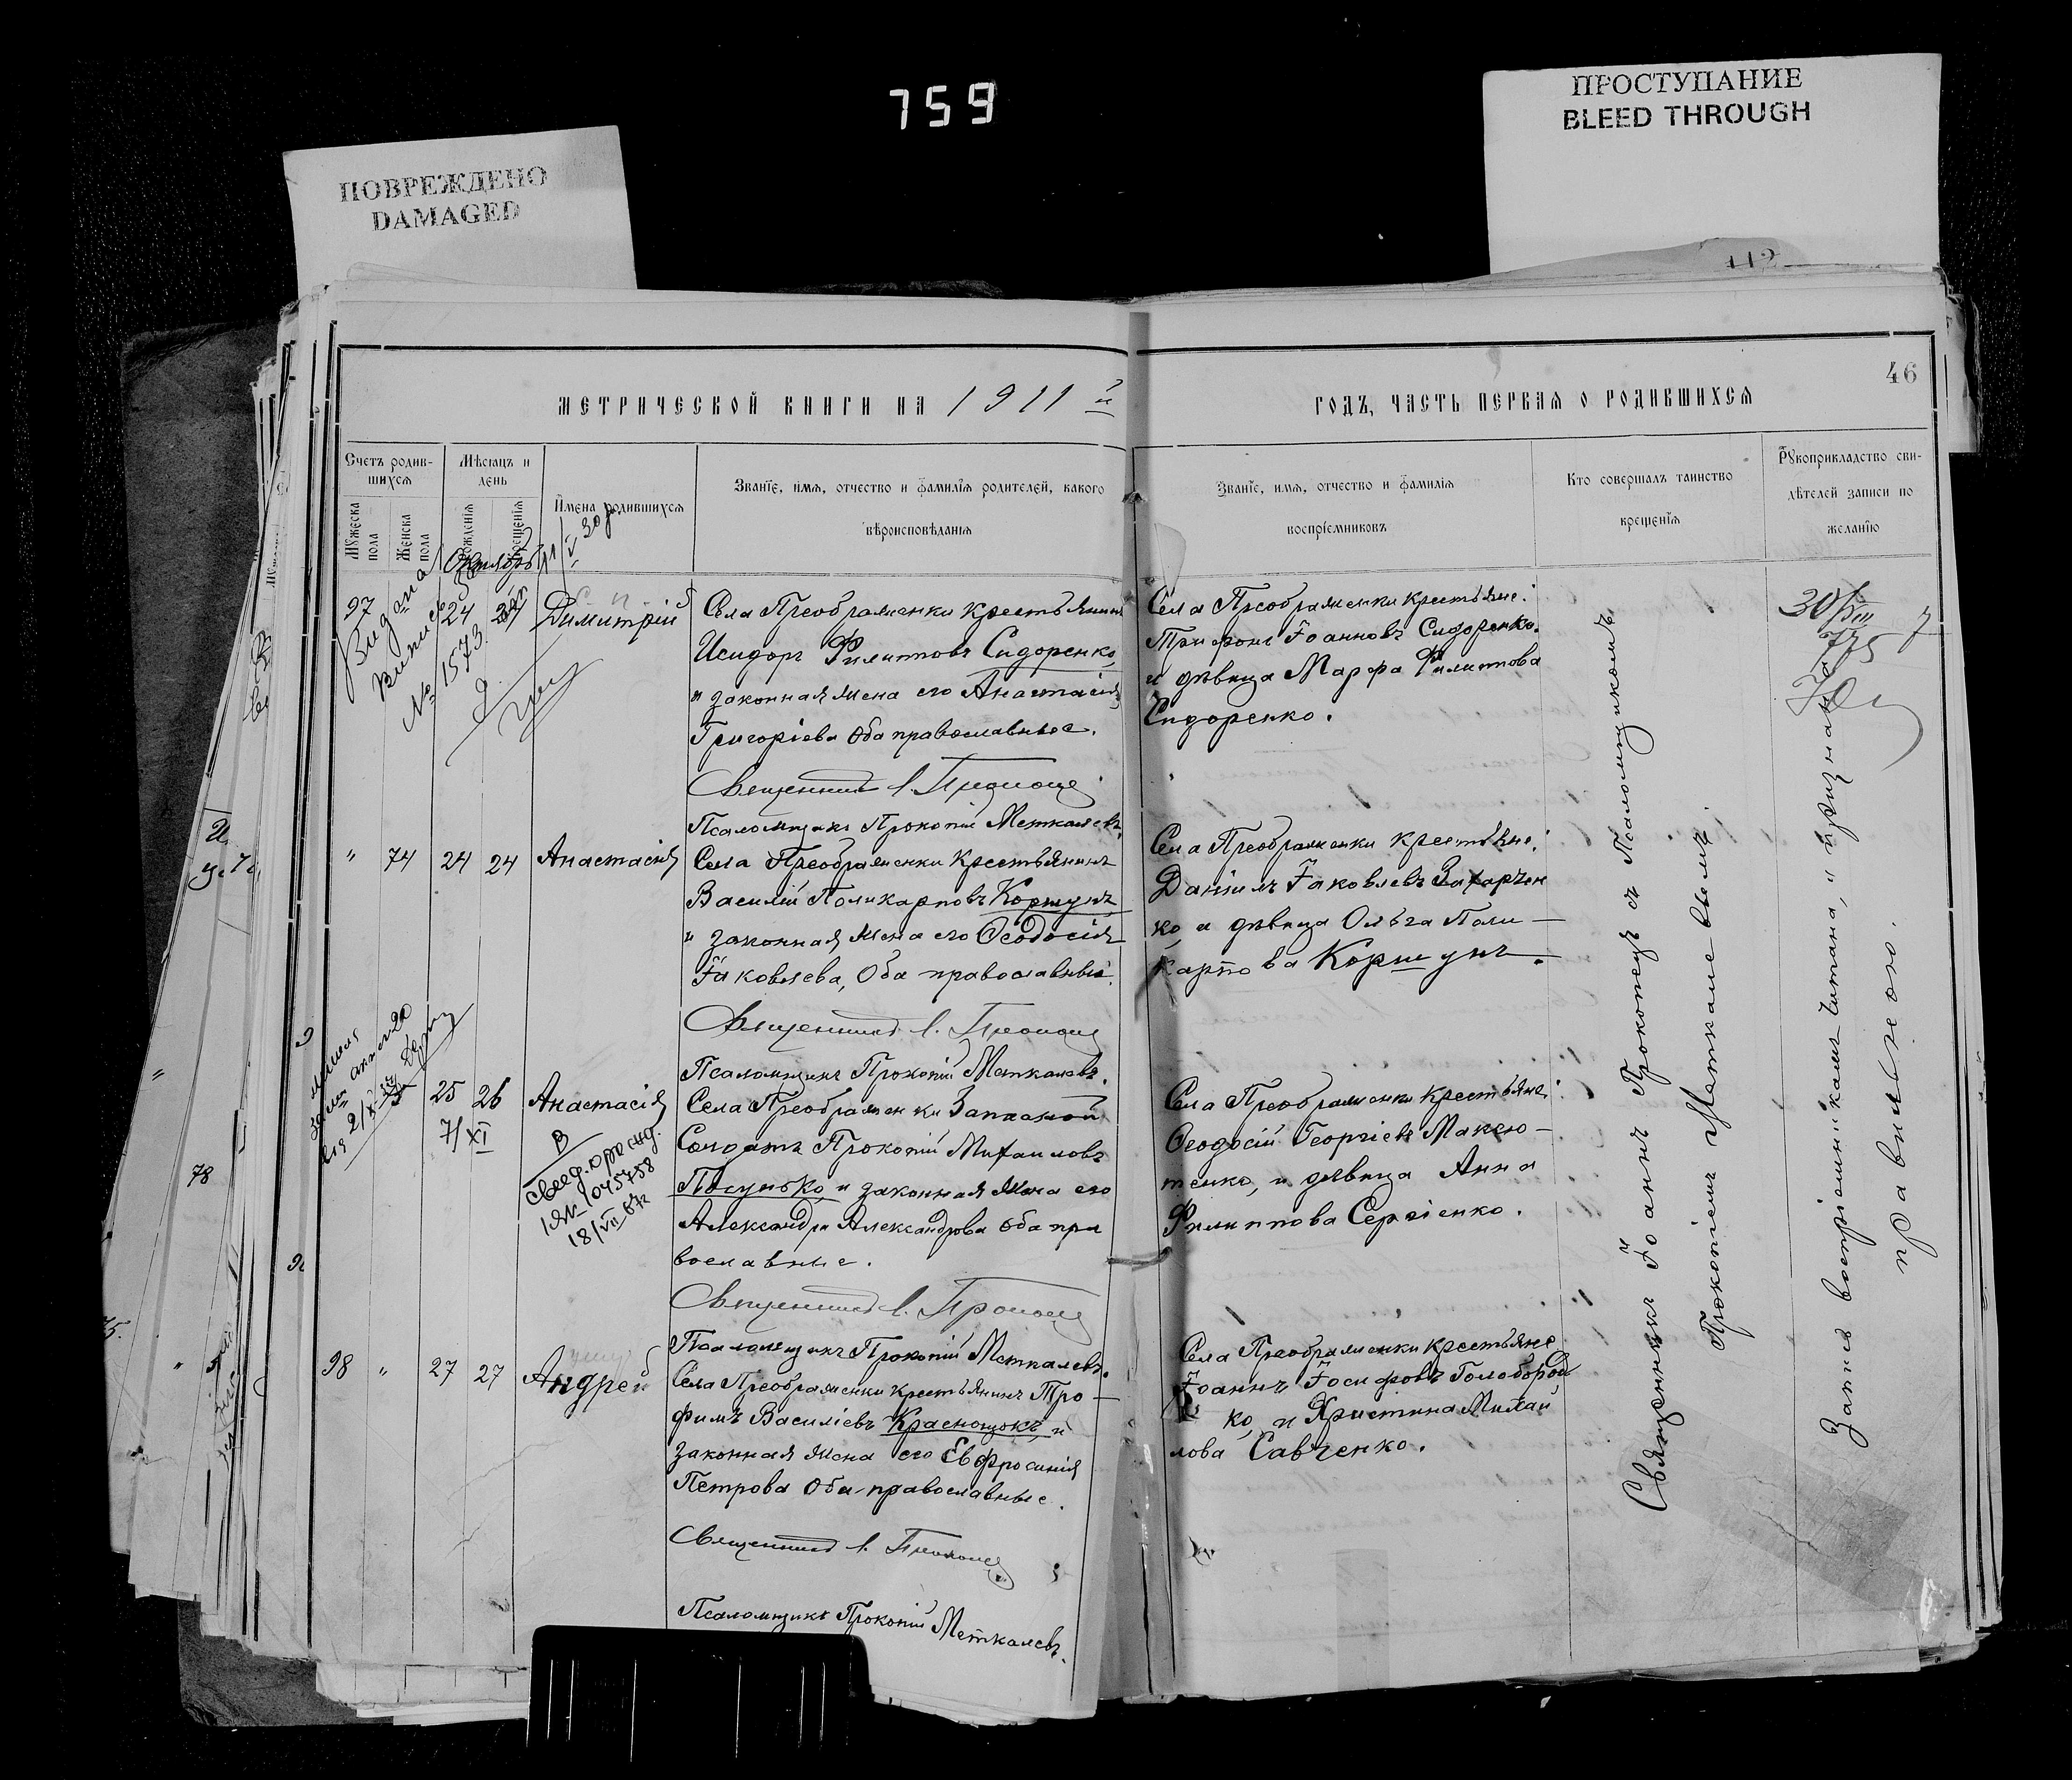 759
ПРОСТУПАНИЕ
BLEED THROUGH
ПОВРЕЖДЕНО
DAMAGED
112
46
МЕТРИЧЕСКОЙ КНИГИ НА 1911й
ГОДЪ, ЧАСТЬ ПЕРВАЯ О РОДИВШИХСЯ
Счетъ родив-
шихся
Мужеска пола
Женска пола
Мѣсяцъ и
день
рожденія
крещенія
Имена родившихся
Званіе, имя, отчество и фамилія родителей, какого
вѣроисповѣданія
Званіе, имя, отчество и фамилія
воспріемниковъ
Кто совершалъ таинство
крещенія
Рукоприкладство сви-
дѣтелей записи по
желанію
Октябрь
97
24
Димитрій
Выдана
№ 1573
Села Преображенки крестьянинъ
Исидоръ Филипповъ Сидоренко,
и законная жена его Анастасія
Григоріева оба православные.
Священникъ І. Прокопецъ
Псаломщикъ Прокопій Меткалевъ.
Села Преображенки крестьяне:
Трифонъ Іоанновъ Сидоренко.
и дѣвица Марфа Филиппова
Сидоренко.
30/VIII
775
" 74 24 24 Анастасія
Села Преображенки крестьянинъ
Василій Поликарповъ Коршунъ
и законная жена его Ѳеодосія
Іаковлева, Оба православные.
Священникъ І. Прокопецъ
Псаломщикъ Прокопій Меткалевъ.
Села Преображенки крестьяне:
Даніилъ Іаковлевъ Захарчен
ко, и дѣвица Ольга Поли-
карпова Коршунъ.
25 26 Анастасія
7/XI
В
свед. о рожд.
1045758
18/VII 67г
Села Преображенки Запасной
Солдатъ Прокопій Михаиловъ
Посунько, и законная жена его
Александра Александрова оба пра
вославные.
Священникъ І. Прокопецъ
Псаломщикъ Прокопій Меткалевъ.
Села Преображенки крестьяне:
Ѳеодосій Георгіевъ Максю-
тенко, и дѣвица Анна
Филиппова Сергіенко.
98 " 27 27 Андрей
Села Преображенки крестьянинъ Тро-
фимъ Василіевъ Краснощокъ, и
законная жена его Евфросинія
Петрова Оба православные.
Священникъ І. Прокопецъ
Псаломщикъ Прокопій Меткалевъ.
Села Преображенки крестьяне
Іоаннъ Іосифовъ Голобород
ко, и Христина Михай
лова Савченко.
Священникъ Іоаннъ Прокопецъ съ Псаломщикомъ
Прокопіемъ Меткалевымъ.
Запись воспріемникамъ читана, и признана
правильною.
78